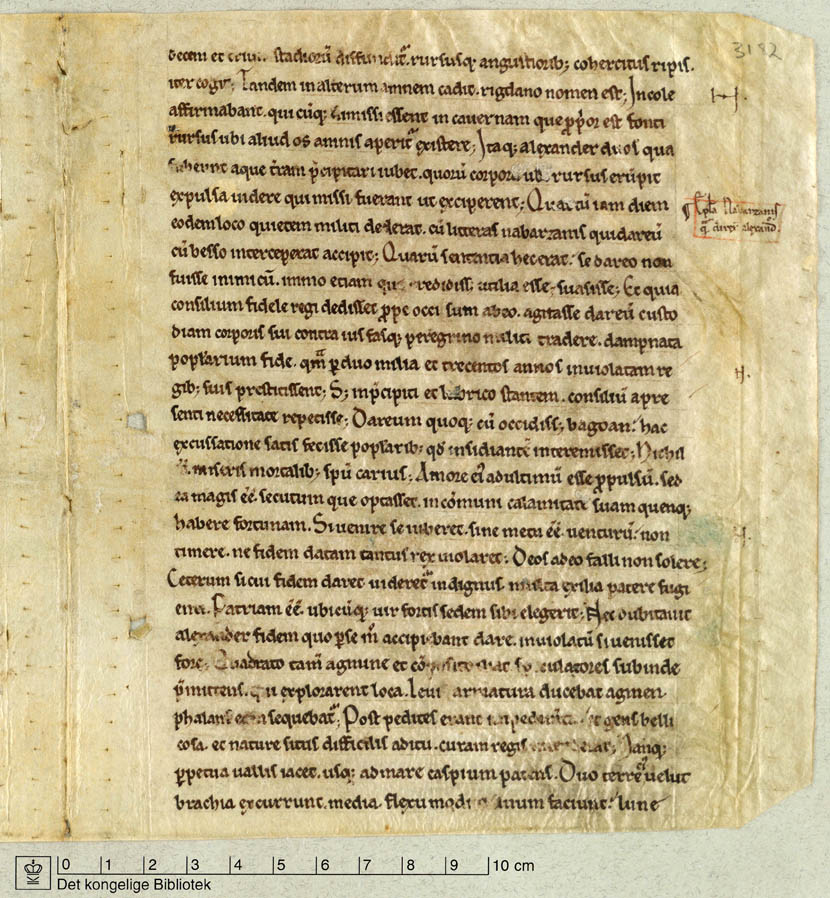 decem et stadiorū diffundit̄. rursusq; angustiorib; cohercitus ripis.
iter cogit; Tandem in alterum amnem cadit. rigdano nomen est; Incole
affirmabant. qui cūq; dimissi essent in cavernam que ꝓpior est fonti
rursus ubi aliud os amnis aperit̄ existere; Itaq; alexander duos qua
subeunt aque t̄ram p̄cipitari iubet. quorū corpora rursus erūpit
expulsa uidere qui missi fuerant ut exciperent; Quartū iam diem
eodem loco quietem militi dederat. cū litteras nabarzanis qui dareū
cū besso interceperat accipit; Quarū sententia hec erat. se dareo non
fuisse inimicū. immo etiam que credidiss; utilia esse. suasisse; Et quia
consilium fidele regi dedisset ꝓpe occisum ab eo. agitasse dareū custo
diam corporis sui contra ius fasq; peregrino militi tradere. dampnata
popl̄arium fide. qm̄ ꝑ duo milia et trecentos annos inuiolatam re
gib; suis prestitissent; S; in p̄cipiti et lubrico stantem. consiliū a pre
senti necessitate repetisse; Dareum quoq; cū occidiss; bagoan. hac
excussatione satis fecisse popl̄arib; qd̄ insidiantē interemisset; Nichil
miseris mortalib; spū carius; Amore ei ad ultimū esse ꝓpulsū. sed
ea magis eē. secutum que optasset. in cōmuni calamitate suam quenq;
habere fortunam. Si uenire se iuberet. sine metu eē uenturū. non
timere. ne fidem datam tantus rex uiolaret; Deos a deo falli non solere;
Ceterum si cui fidem daret uideret̄ indignus. multa exilia patere fugi
enti. Patriam eē. ubicūq; uir fortis sedem sibi elegerit; Nec dubitauit
alexander fidem quo ꝑse m̄ accipiebant dare. inuiolatū si uenisset
fore; Quadrato tam̄ agmine et cōposito ibat speculatores subinde
p̄mittens. qui explorarent loca. Leuis armatura ducebat agmen.
phalanx eā sequebat̄; Post pedites erant impedimta. et gens belli
cosa. et nature situs difficilis aditu. curam regis intenderat; Nanq;
ꝑpetua uallis iacet. usq; ad mare caspium patens. Duo terre eī uelut
brachia excurrunt. media. flexu modico sinum faciunt. lune
3182
Epla Nabarzanis
0 1 2 3 4 5 6 7 8 9 10 cm
Det kongelige Bibliotek